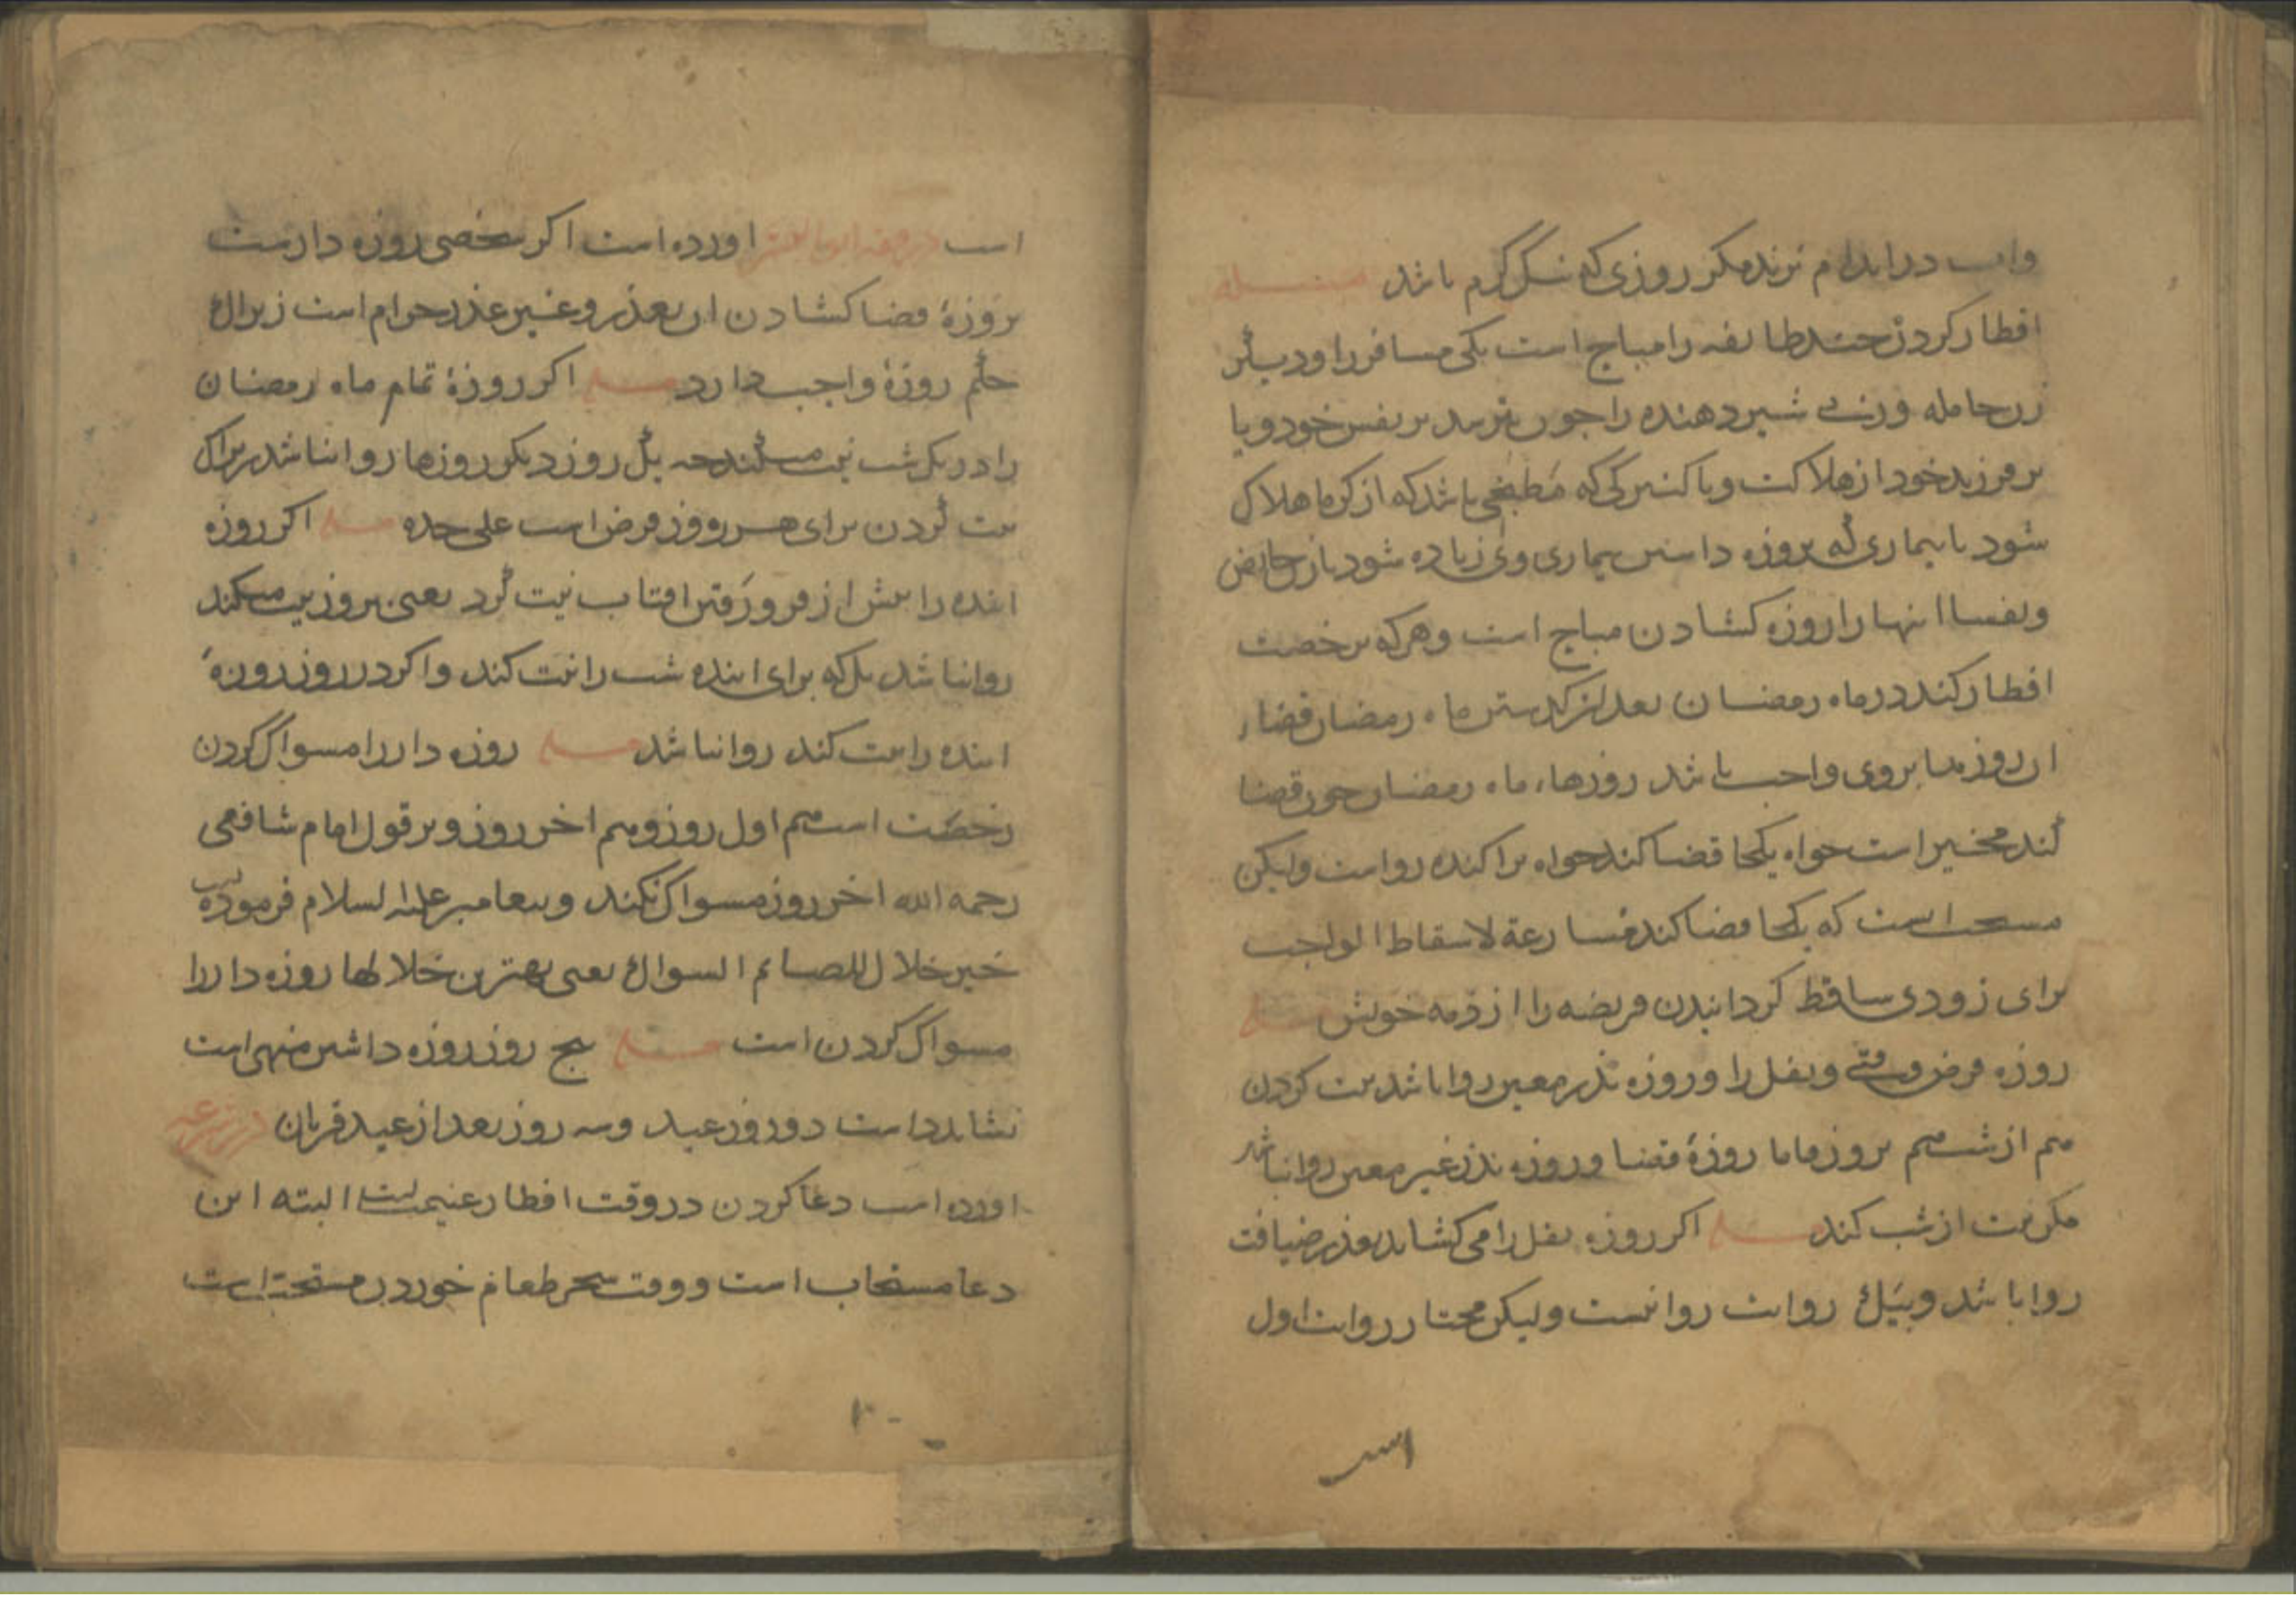 واب در اندام نزند مکر روزی که سکل کرم باشد مسئله
افطار کردن چند طایفه را مباح است یکی مسافر را و دیگر
زن حامله و زن شیر دهنده را چون بترسد بر نفس خود و یا
بر فرزند خود از هلاکت و یا کنیزکی که مطبخی باشد که از کرما هلاک
شود یا بیماری که بروزه داشتن بیماری وی زیاده شود یا زن حایض
و نفسا اینها را روزه کشادن مباح است و هر که برخصت
افطار کند در ماه رمضان بعد از کذشتن ماه رمضان قضاء
ان روزها بروی واجب باشد روزهاء ماه رمضان چون قضا
کند مخیر است خواه یکجا قضا کند خواه پراکنده روا است ولیکن
مستحب است که یکجا قضا کند مسارعة لاسقاط الواجب
برای زودی ساقط کردانیدن فریضه را از ذمه خویش مسئله
روزه فرض وقتی و نفل را و روزه نذر معین روا باشد نیت کردن
هم از شب هم بروز فاما روزهٔ قضا و روزه نذر غیر معین روا نباشد
مکر نیت از شب کند مسئله اکر روزه نفل را می کشاید بعذر ضیافت
روا باشد و بیک روایت روا نیست ولیکن مختار روایت اول
است
است در اورده است اکر شخصی روزه دار است
بروزهٔ قضا کشادن ان بعذر و غیر عذر حرام است زیراک
حکم روزهٔ واجب دارد مسئله اکر روزهٔ تمام ماه رمضان
را در یک شب نیت میکند جز یک روز دیکر روزها روا نباشد زیراک
نیت کردن برای هر روز فرض است علی حده مسئله اکر روزه
اینده را پیش از فرو رفتن افتاب نیت کرد یعنی بروز نیت میکند
روا نباشد بلکه برای اینده شب را نیت کند و اکر در روز روزهٔ
اینده را نیت کند روا نباشد مسئله روزه دار را مسواک کردن
رخصت است هم اول روز و هم اخر روز و بر قول امام شافعی
رحمه الله اخر روز مسواک نکند و پیغامبر علیه السلام فرموده است
خیر خلال للصایم السواک یعنی بهترین خلالها روزه دار را
مسواک کردن است مسئله پنج روز روزه داشتن منهی است
نشاید داشت دو روز عید و سه روز بعد از عید قربان در شرعه
اورده است دعا کردن در وقت افطار غنیمت است البته این
دعا مستجاب است و وقت سحر طعام خوردن مستحب است